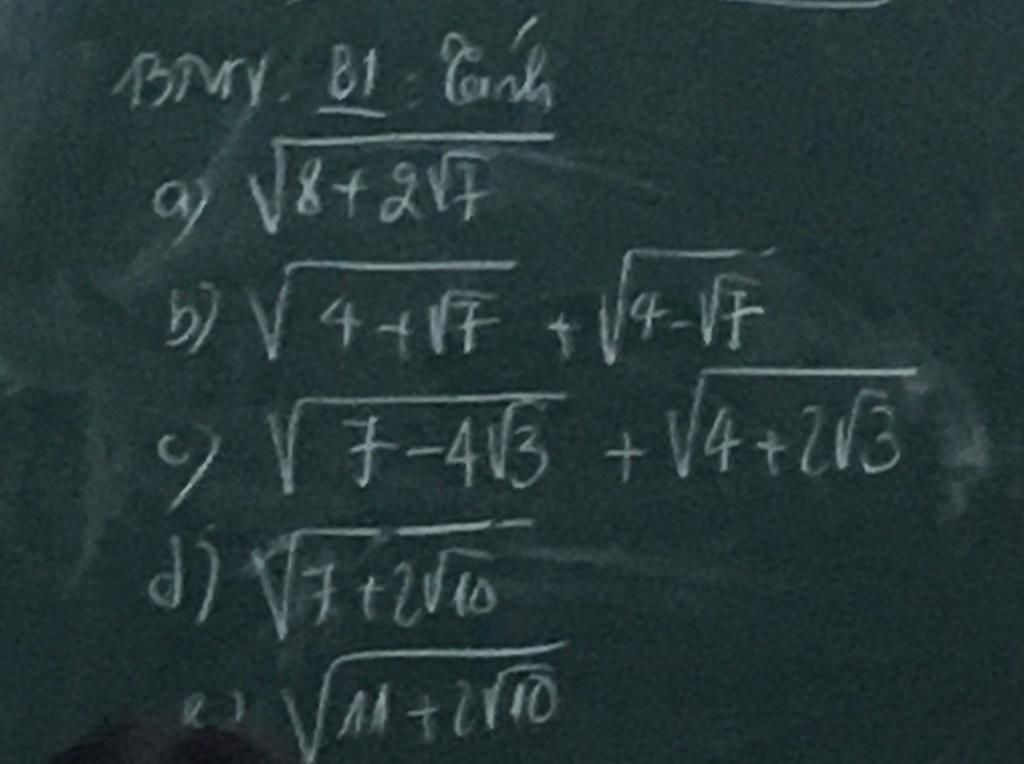 BTVN. B1: Tính
a) √(8 + 2√7)
b) √(4 + √7) + √(4 - √7)
c) √(7 - 4√3) + √(4 + 2√3)
d) √(7 + 2√10)
e) √(11 + 2√10)